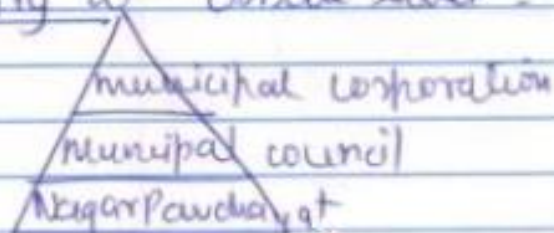 municipal corporation
Municipal council
Nagar Panchayat